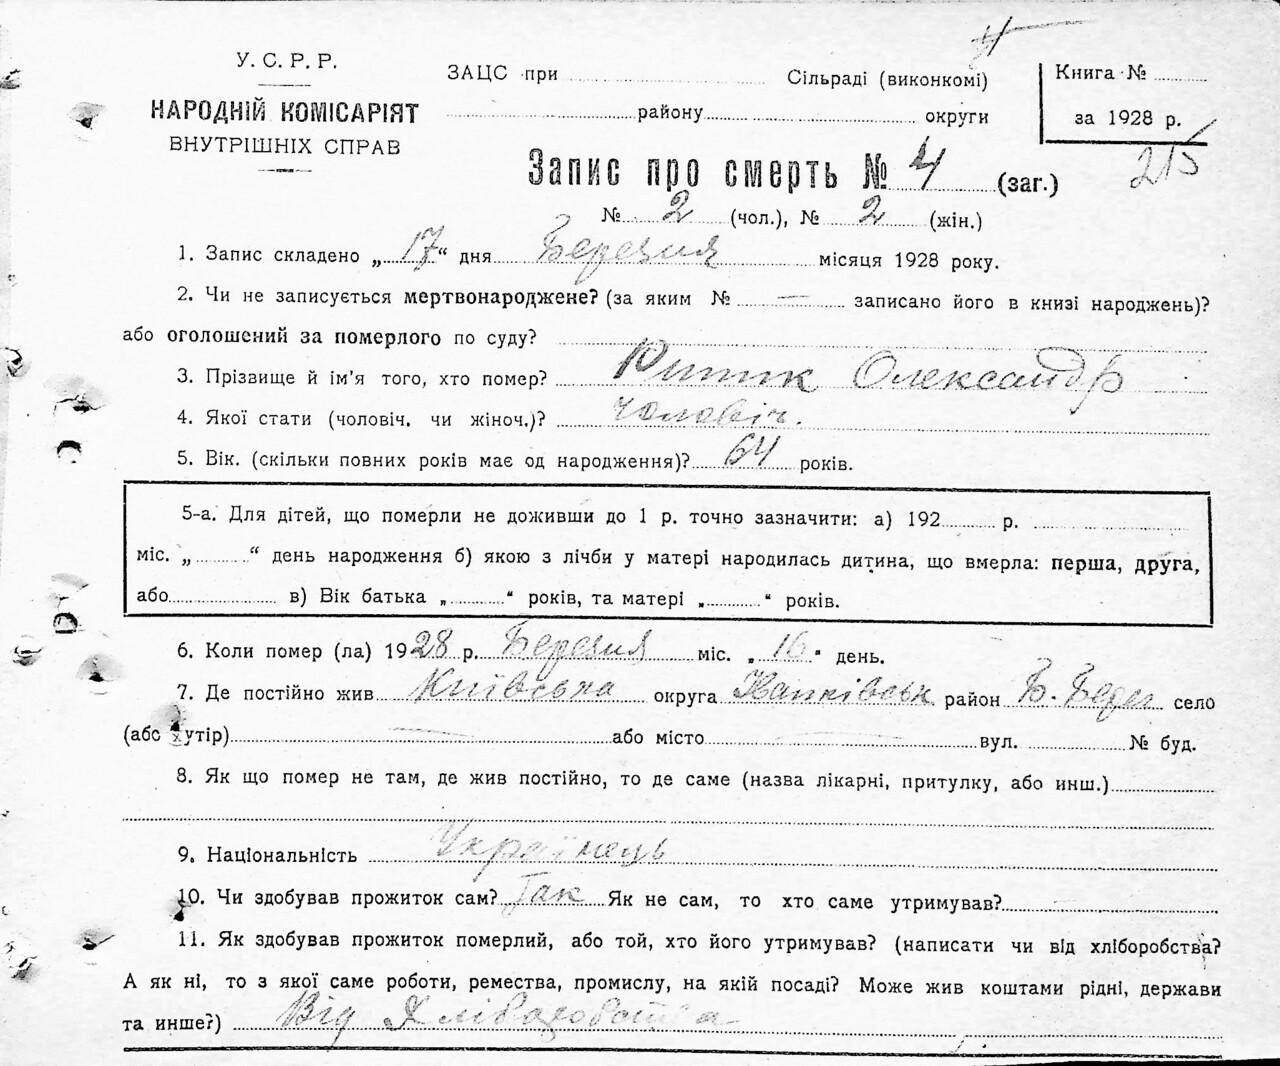 У. С. Р. Р.
НАРОДНІЙ КОМІСАРІЯТ
ВНУТРІШНІХ СПРАВ
ЗАЦС при Сільраді (виконкомі)
району округи
Книга № 
за 1928 р.
215
Запис про смерть № 4 (заг.)
№ 2 (чол.), № 2 (жін.)
1. Запис складено „17“ дня Березня місяця 1928 року.
2. Чи не записується мертвонароджене? (за яким № — записано його в книзі народжень)?
або оголошений за померлого по суду?
3. Прізвище й ім'я того, хто помер? Олександр
4. Якої стати (чоловіч. чи жіноч.)? чоловіч.
5. Вік. (скільки повних років має од народження)? 64 років.
5-а. Для дітей, що померли не доживши до 1 р. точно зазначити: а) 192 р.
міс. „ “ день народження б) якою з лічби у матері народилась дитина, що вмерла: перша, друга,
або в) Вік батька „ “ років, та матері „ “ років.
6. Коли помер (ла) 1928 р. Березня міс. „16“ день.
7. Де постійно жив Київська округа район село
(або хутір) — або місто — вул. № буд.
8. Як що помер не там, де жив постійно, то де саме (назва лікарні, притулку, або инш.)
9. Національність Українець
10. Чи здобував прожиток сам? Так Як не сам, то хто саме утримував?
11. Як здобував прожиток померлий, або той, хто його утримував? (написати чи від хліборобства?
А як ні, то з якої саме роботи, ремества, промислу, на якій посаді? Може жив коштами рідні, держави
та инше?) Від Хліборобства